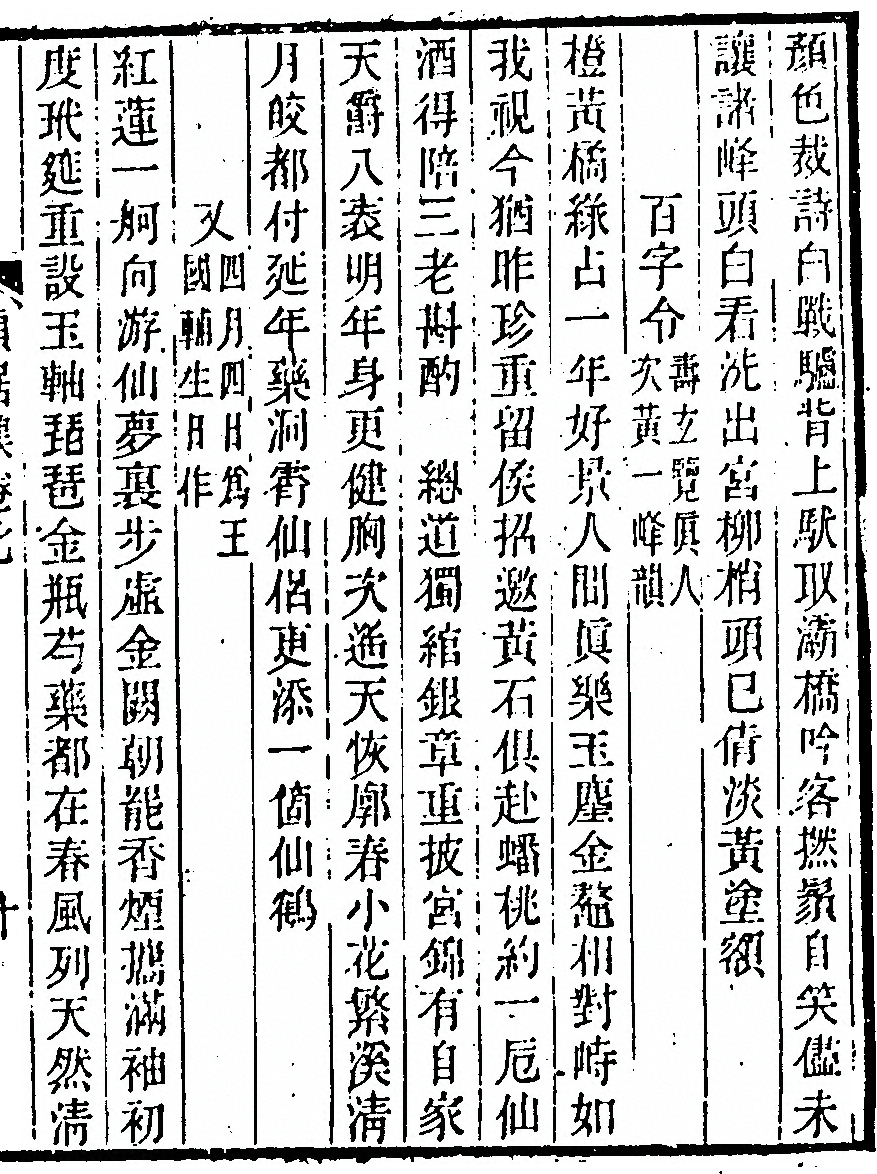 顏色裁詩白戰驢背上馱取灞橋吟客撚鬚自笑儘未
讓諸峰頭白看洗出宮柳梢頭已倩淡黃塗額
百字令
壽玄覽眞人
次黃一峰韻
橙黃橘綠占一年好景人間眞樂玉塵金鼇相對時如
我視今猶昨珍重留侯招邀黃石俱赴蟠桃約一卮仙
酒得陪三老斟酌　總道獨綰銀章重披宮錦有自家
天爵八袠明年身更健胸次遙天恢廓春小花繁溪淸
月皎都付延年藥洞霄仙侶更添一箇仙鶴
又
四月四日爲王
國輔生日作
紅蓮一舸向游仙夢裏步虛金闕朝龍香煙攜滿袖初
度玳筵重設玉軸琵琶金瓶芍藥都在春風列天然淸